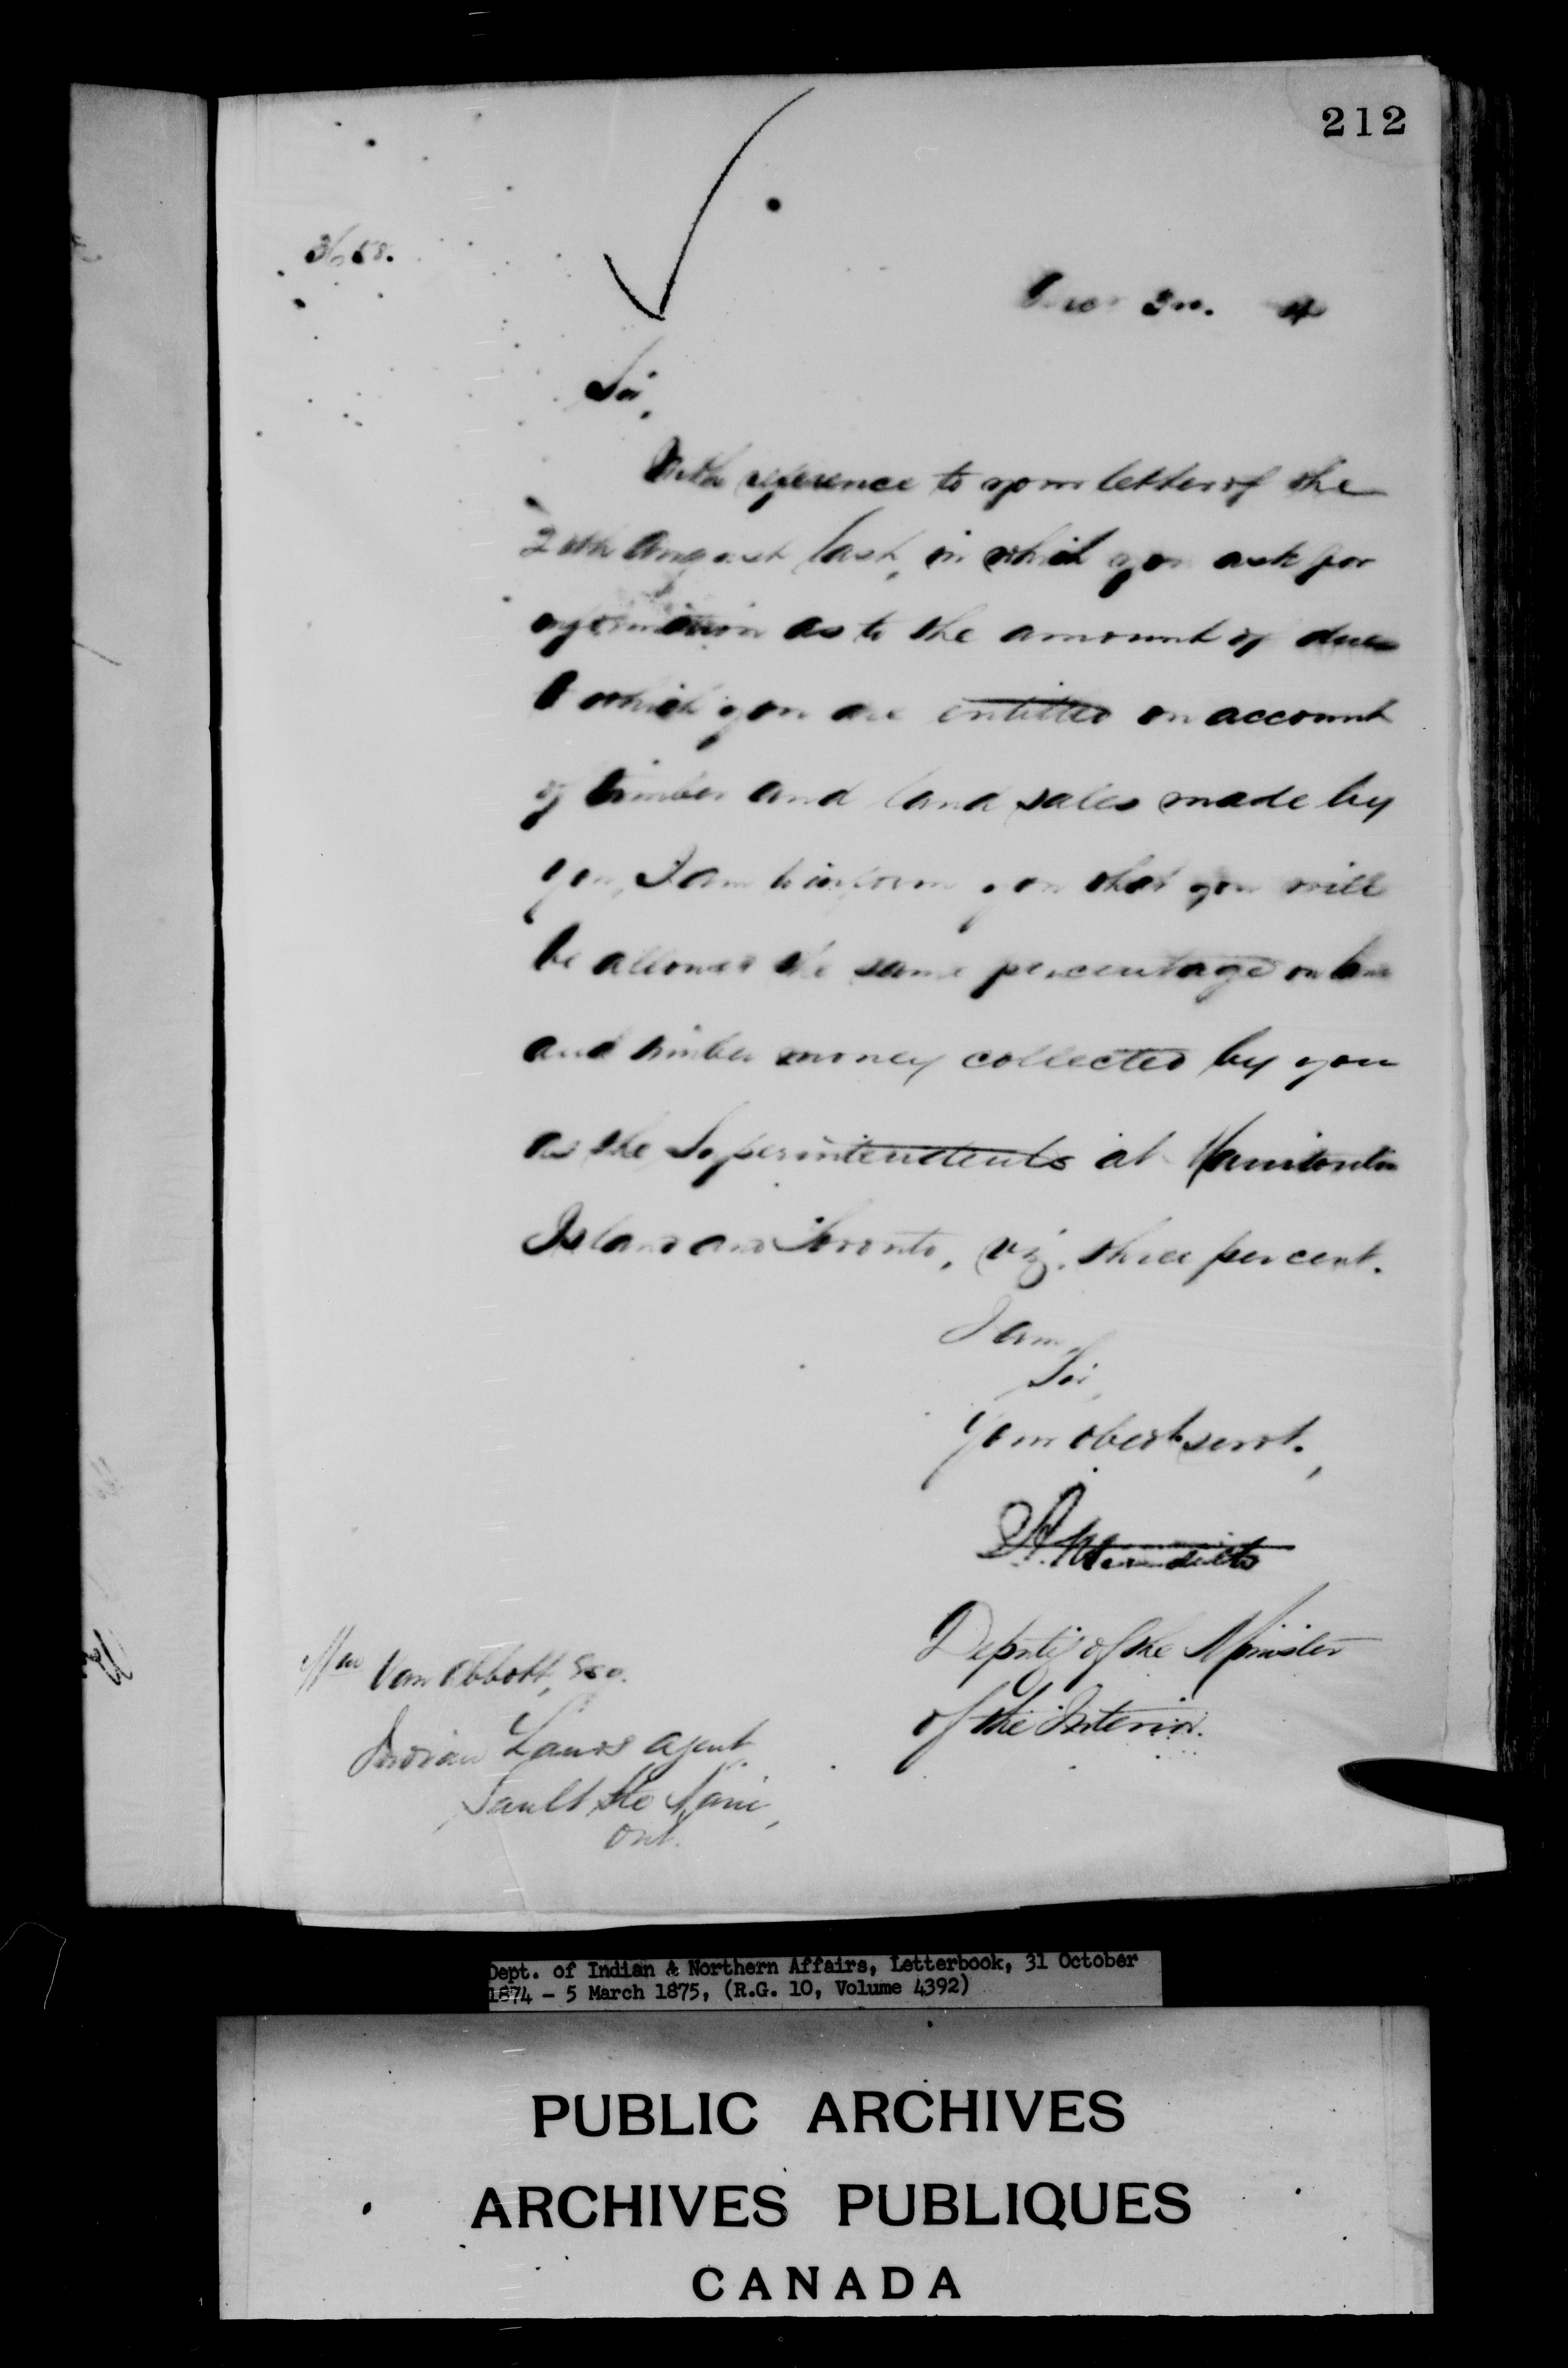 212
3658.
Dec 3rd. 4
Sir,
With reference to your letter of the
20th August last, in which you ask for
information as to the amount of dues
to which you are entitled on account
of timber and land sales made by
you, I am to inform you that you will
be allowed the same percentage on land
and timber money collected by you
as the Superintendents at Manitoulin
Island and Toronto, viz. three per cent.
I am,
Sir,
Your obedt servt.,
Deputy of the Minister
of the Interior.
Wm Van Abbott, Esq.
Indian Lands Agent
Sault Ste Marie,
Ont.
Dept. of Indian & Northern Affairs, Letterbook, 31 October
1874 - 5 March 1875, (R.G. 10, Volume 4392)
PUBLIC ARCHIVES
ARCHIVES PUBLIQUES
CANADA